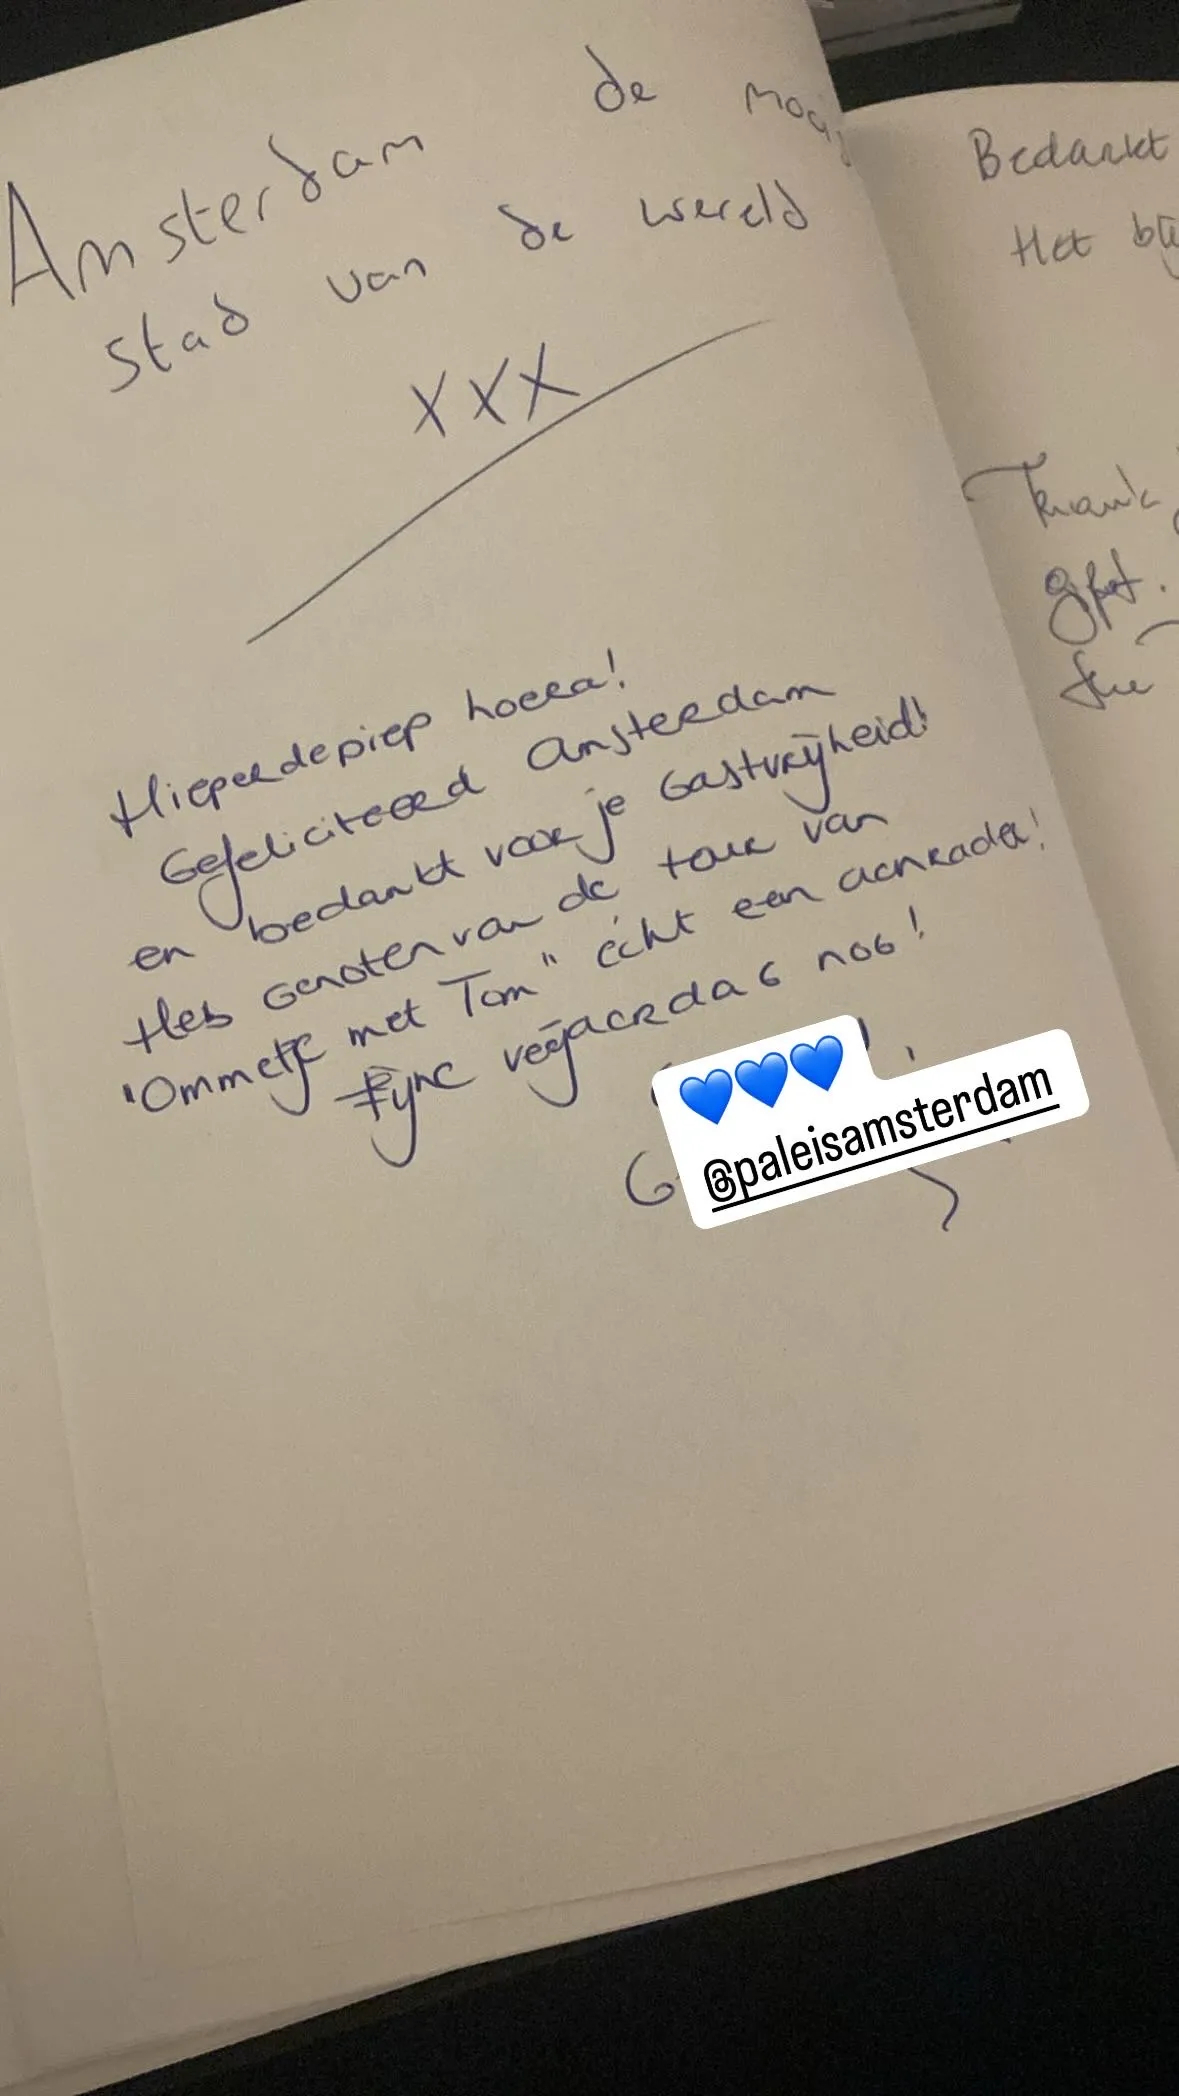 Amsterdam de
stad van de wereld
XXX
Hieperdepiep hoera!
Gefeliciteerd Amsterdam
en bedankt voor je Gastvrijheid!
Heb Genoten van de tour van
"Ommetje met Tom" echt een aanrader!
Fijne verjaardag nog!
💙💙💙
@paleisamsterdam
Bedankt
Het
Thank
gift.
the